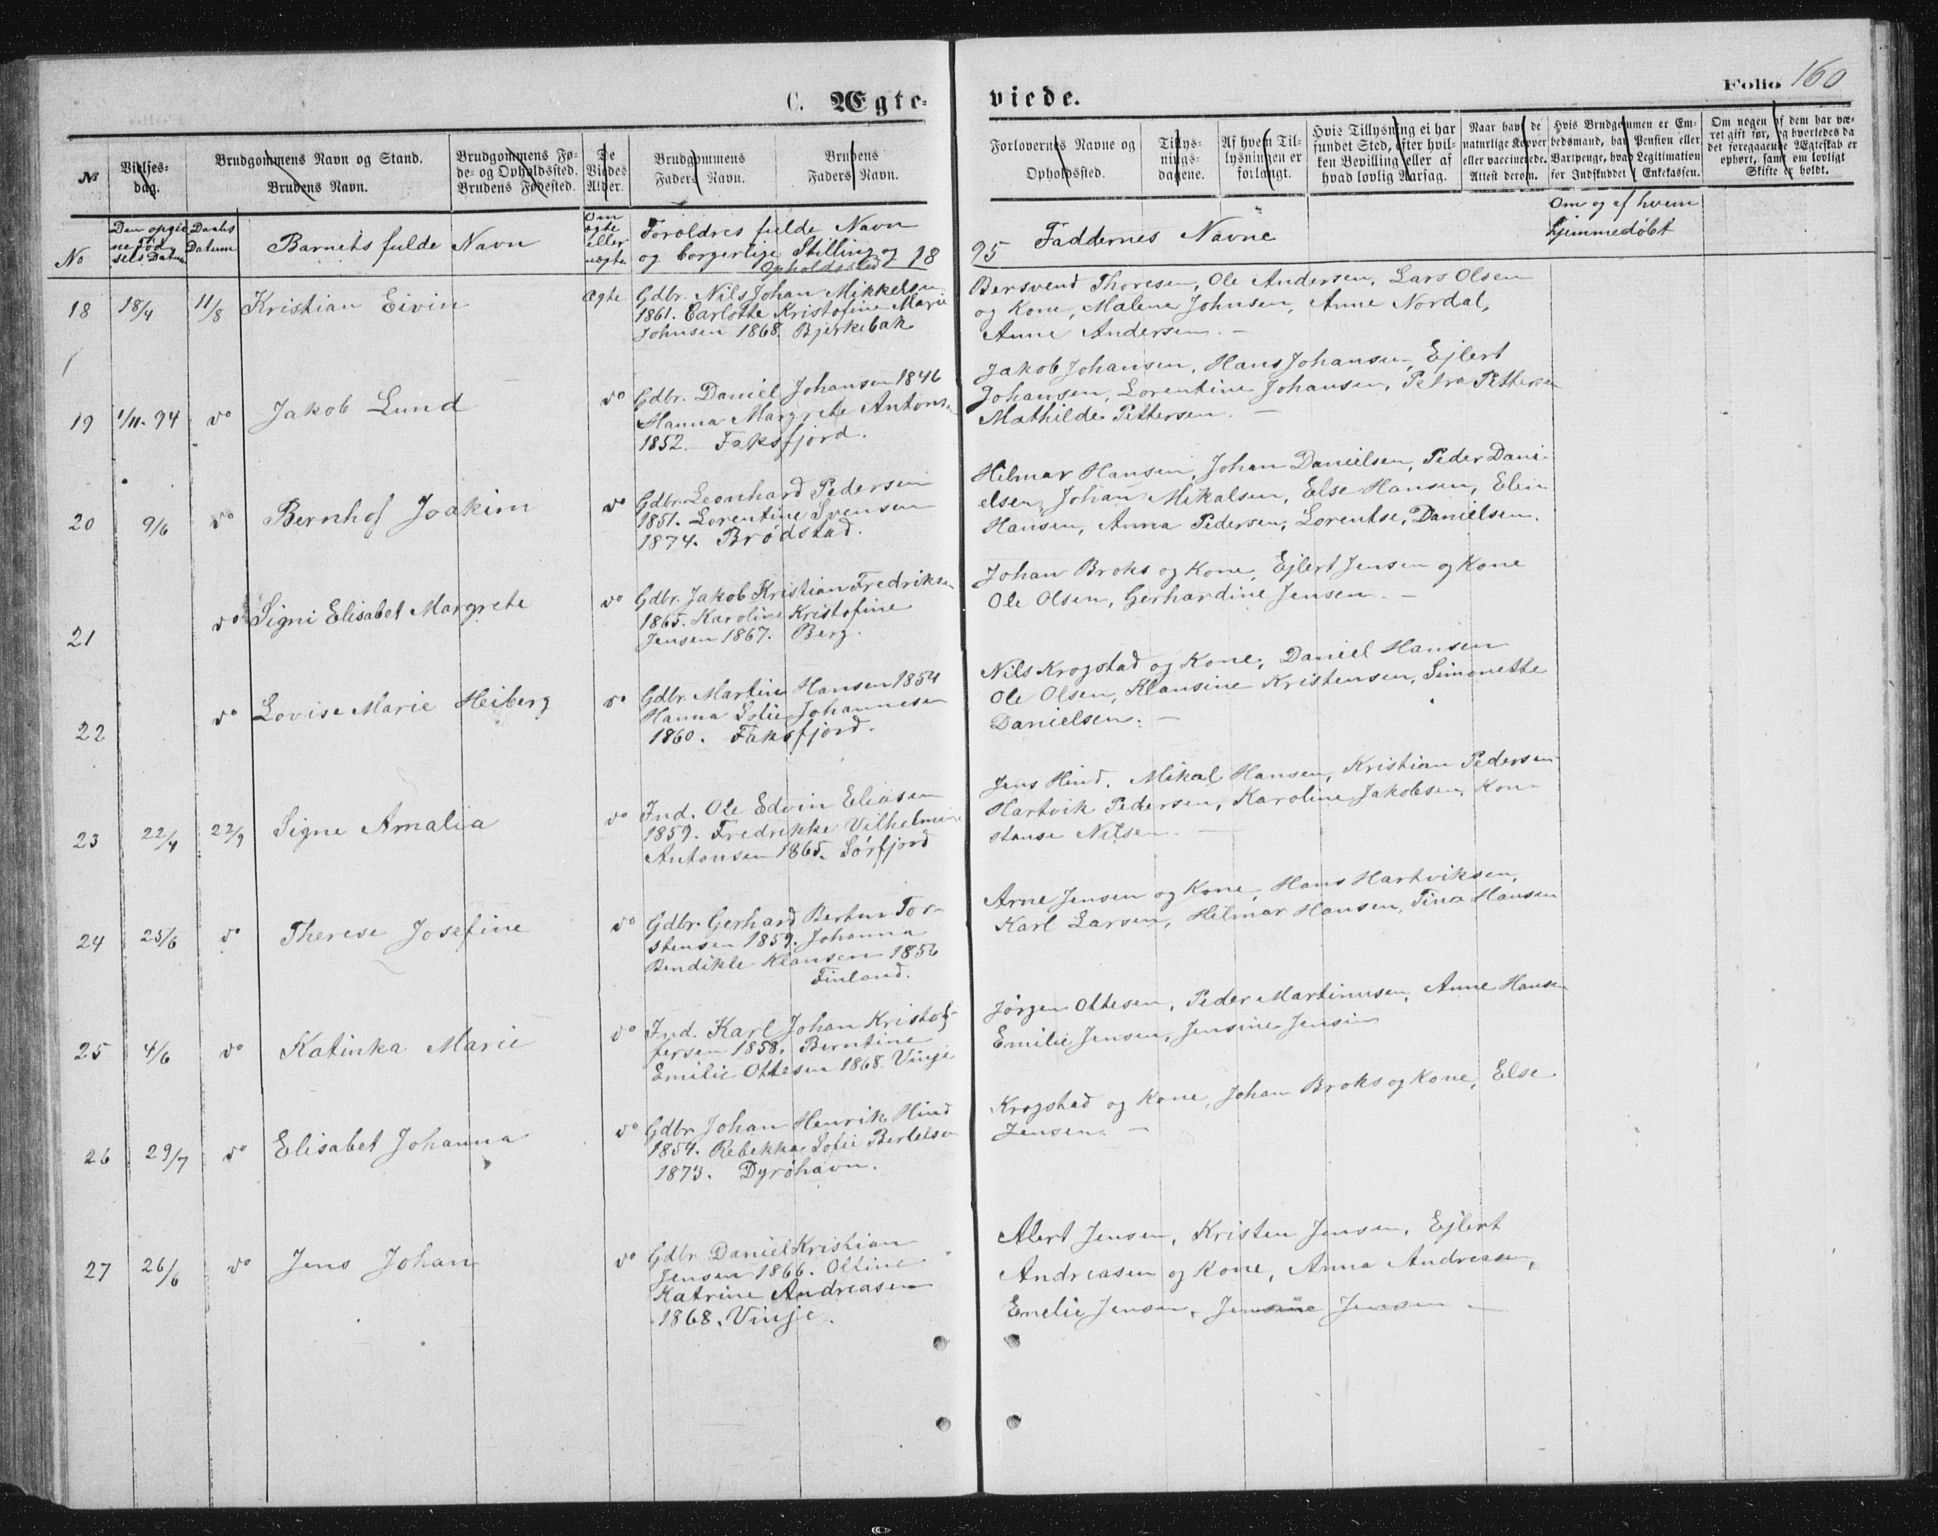 C. Ægte-
viede.
Folio 160
No
Vielses-
dag.
Brudgommens Navn og Stand.
Brudens Navn.
Brudgommens Fø-
de- og Opholdssted.
Brudens Fødested.
De
Viedes
Alder.
Brudgommens
Faders Navn.
Brudens
Faders Navn.
Forlovernes Navne og
Opholdssted.
Tillys-
nings-
dagene.
Af hvem Til-
lysningen er
forlangt.
Hvis Tillysning ei har
fundet Sted, efter hvil-
ken Bevilling eller af
hvad lovlig Aarsag.
Naar havt de
naturlige Kopper
eller vaccinerede.
Attest derom.
Hvis Brudgommen er Em-
bedsmand, har Pension eller
Vartpenge, hvad Legitimation
for Indskuddet i Enkekassen.
Om nogen af dem har væ-
ret gift før, og hvorledes da
det foregaaende Ægteskab er
ophørt, samt om lovligt
Skifte er holdt.
No
Den opgiv
ne Fød
sels Datum
Daabs
Datum
Barnets fulde Navn
Om
ægte
eller
uægte
Foroldres fulde Navn
og borgerlige Stilling og
Opholdssted
18
95
Faddernes Navne
Om og af hvem
hjemmedøbt
18 18/4 11/8 Kristian Eivin Ægte Gdbr. Nils Johan Mikkelsen
1861. Carlotte Kristofine Marie
Johnsen 1868. Bjerkebak
Bersvend Thoresen, Ole Andersen, Lars Olsen
og Kone, Malene Johnsen, Anne Nordal,
Anne Andersen. —
19 1/11-94 do Jakob Lund do Gdbr. Daniel Johansen 1846
Hanna Margrete Antons.
1852. Faksfjord.
Jakob Johansen, Hans Johansen, Ejlert
Johansen, Lorentine Johansen, Petra Pettersen
Mathilde Pettersen. —
20 9/6 do Bernhof Joakim do Gdbr. Leonhard Pedersen
1851. Lorentine Svensen
1874. Brødstad.
Hilmar Hansen, Johan Danielsen, Peder Dani-
elsen, Johan Mikalsen, Else Hansen, Elen
Hansen, Anna Pedersen, Lorentse, Danielsen.
21 do Signi Elisabet Margrete do Gdbr. Jakob Kristian Fredriksen
1865. Karoline Kristofine
Jensen 1867. Berg.
Johan Broks og Kone, Ejlert Jensen og Kone
Ole Olsen, Gerhardine Jensen. —
22 do Lovise Marie Heiberg do Gdbr. Martin Hansen 1854
Hanna Sofie Johannesen
1860. Faksfjord.
Nils Krogstad og Kone, Daniel Hansen
Ole Olsen, Klausine Kristensen, Simonette
Danielsen. —
23 22/4 22/9 Signe Amalia do Ind. Ole Edvin Eliasen
1859. Fredrikke Vilhelmine
Antonsen 1865. Sørfjord
Jens Hind. Mikal Hansen, Kristian Pedersen
Hartvik Pedersen, Karoline Jakobsen, Kon-
stanse Nilsen. —
24 25/6 do Therese Josefine do Gdbr. Gerhard Bertus Tor-
stensen 1859. Johanna
Bendikte Klausen 1856
Finland.
Arne Jensen og Kone, Hans Hartviksen,
Karl Larsen, Hilmar Hansen, Tina Hansen
25 4/6 do Katinka Marie do Ind. Karl Johan Kristof-
fersen 1858. Berntine
Emilie Ottesen 1868. Vinje
Jørgen Ottesen, Peder Martinusen, Anne Hansen
Emilie Jensen, Jensine Jensen
26 29/7 do Elisabet Johanna do Gdbr. Johan Henrik Hind
1854. Rebekka Sofie Bertelsen
1873. Dyrøhavn.
Krogstad og Kone, Johan Broks og Kone, Else
Jensen. —
27 26/6 do Jens Johan do Gdbr. Daniel Kristian
Jensen 1866. Oltine
Katrine Andreasen
1868. Vinje.
Alert Jensen, Kristen Jensen, Ejlert
Andreasen og Kone, Anna Andreasen,
Emelie Jensen, Jensine Jensen —